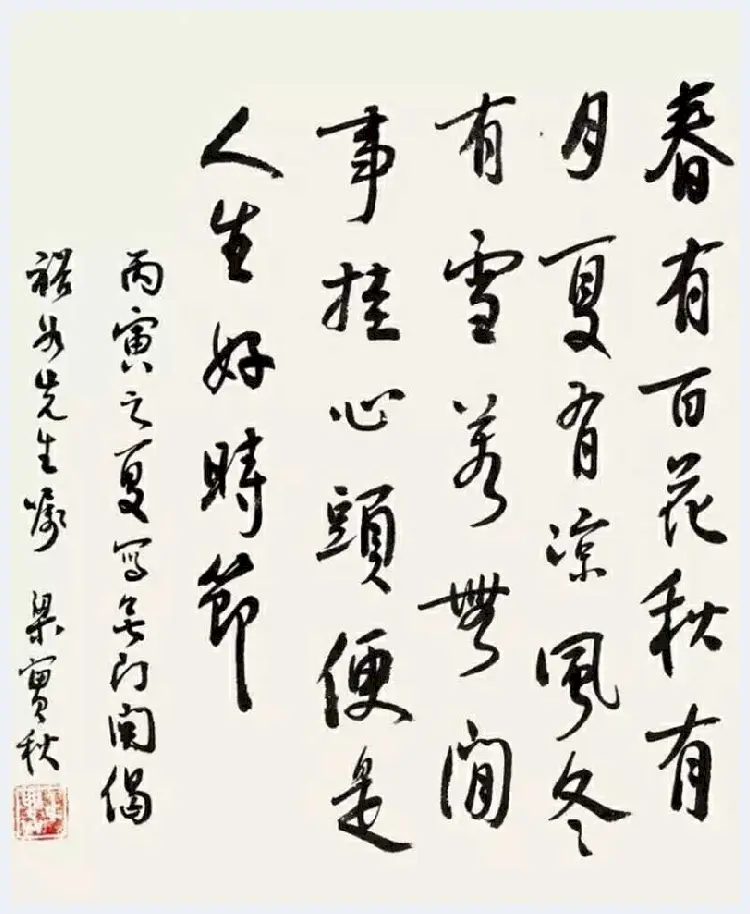 春有百花秋有
月夏有凉風冬
有雪若無閒
事挂心頭便是
人生好時節
丙寅之夏寫無门関偈
先生嘱 梁實秋